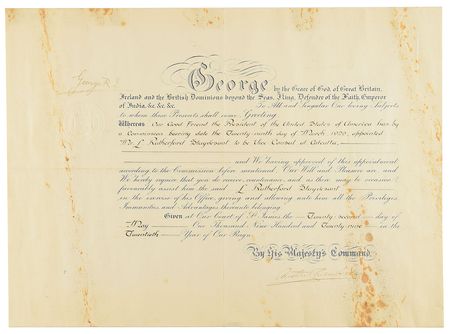 George R.I.
George by the Grace of God, of Great Britain,
Ireland and the British Dominions beyond the Seas, King, Defender of the Faith, Emperor
of India, &c. &c. &c. To All and Singular Our loving Subjects
to whom these Presents shall come, Greeting.
Whereas Our Good Friend the President of the United States of America has by
a Commission bearing date the Twenty ninth day of March, appointed
Mr L. Rutherford to be Vice Consul at Calcutta,
and We having approved of this appointment
according to the Commission before mentioned, Our Will and Pleasure are, and
We hereby require that you do receive, countenance, and as there may be occasion
favourably assist him the said L. Rutherford
in the exercise of his Office, giving and allowing unto him all the Privileges
Immunities and Advantages thereunto belonging.
Given at Our Court of St James the Twenty second day of
May One Thousand Nine Hundred and Twenty nine in the
Twentieth Year of Our Reign.
By His Majesty's Command.